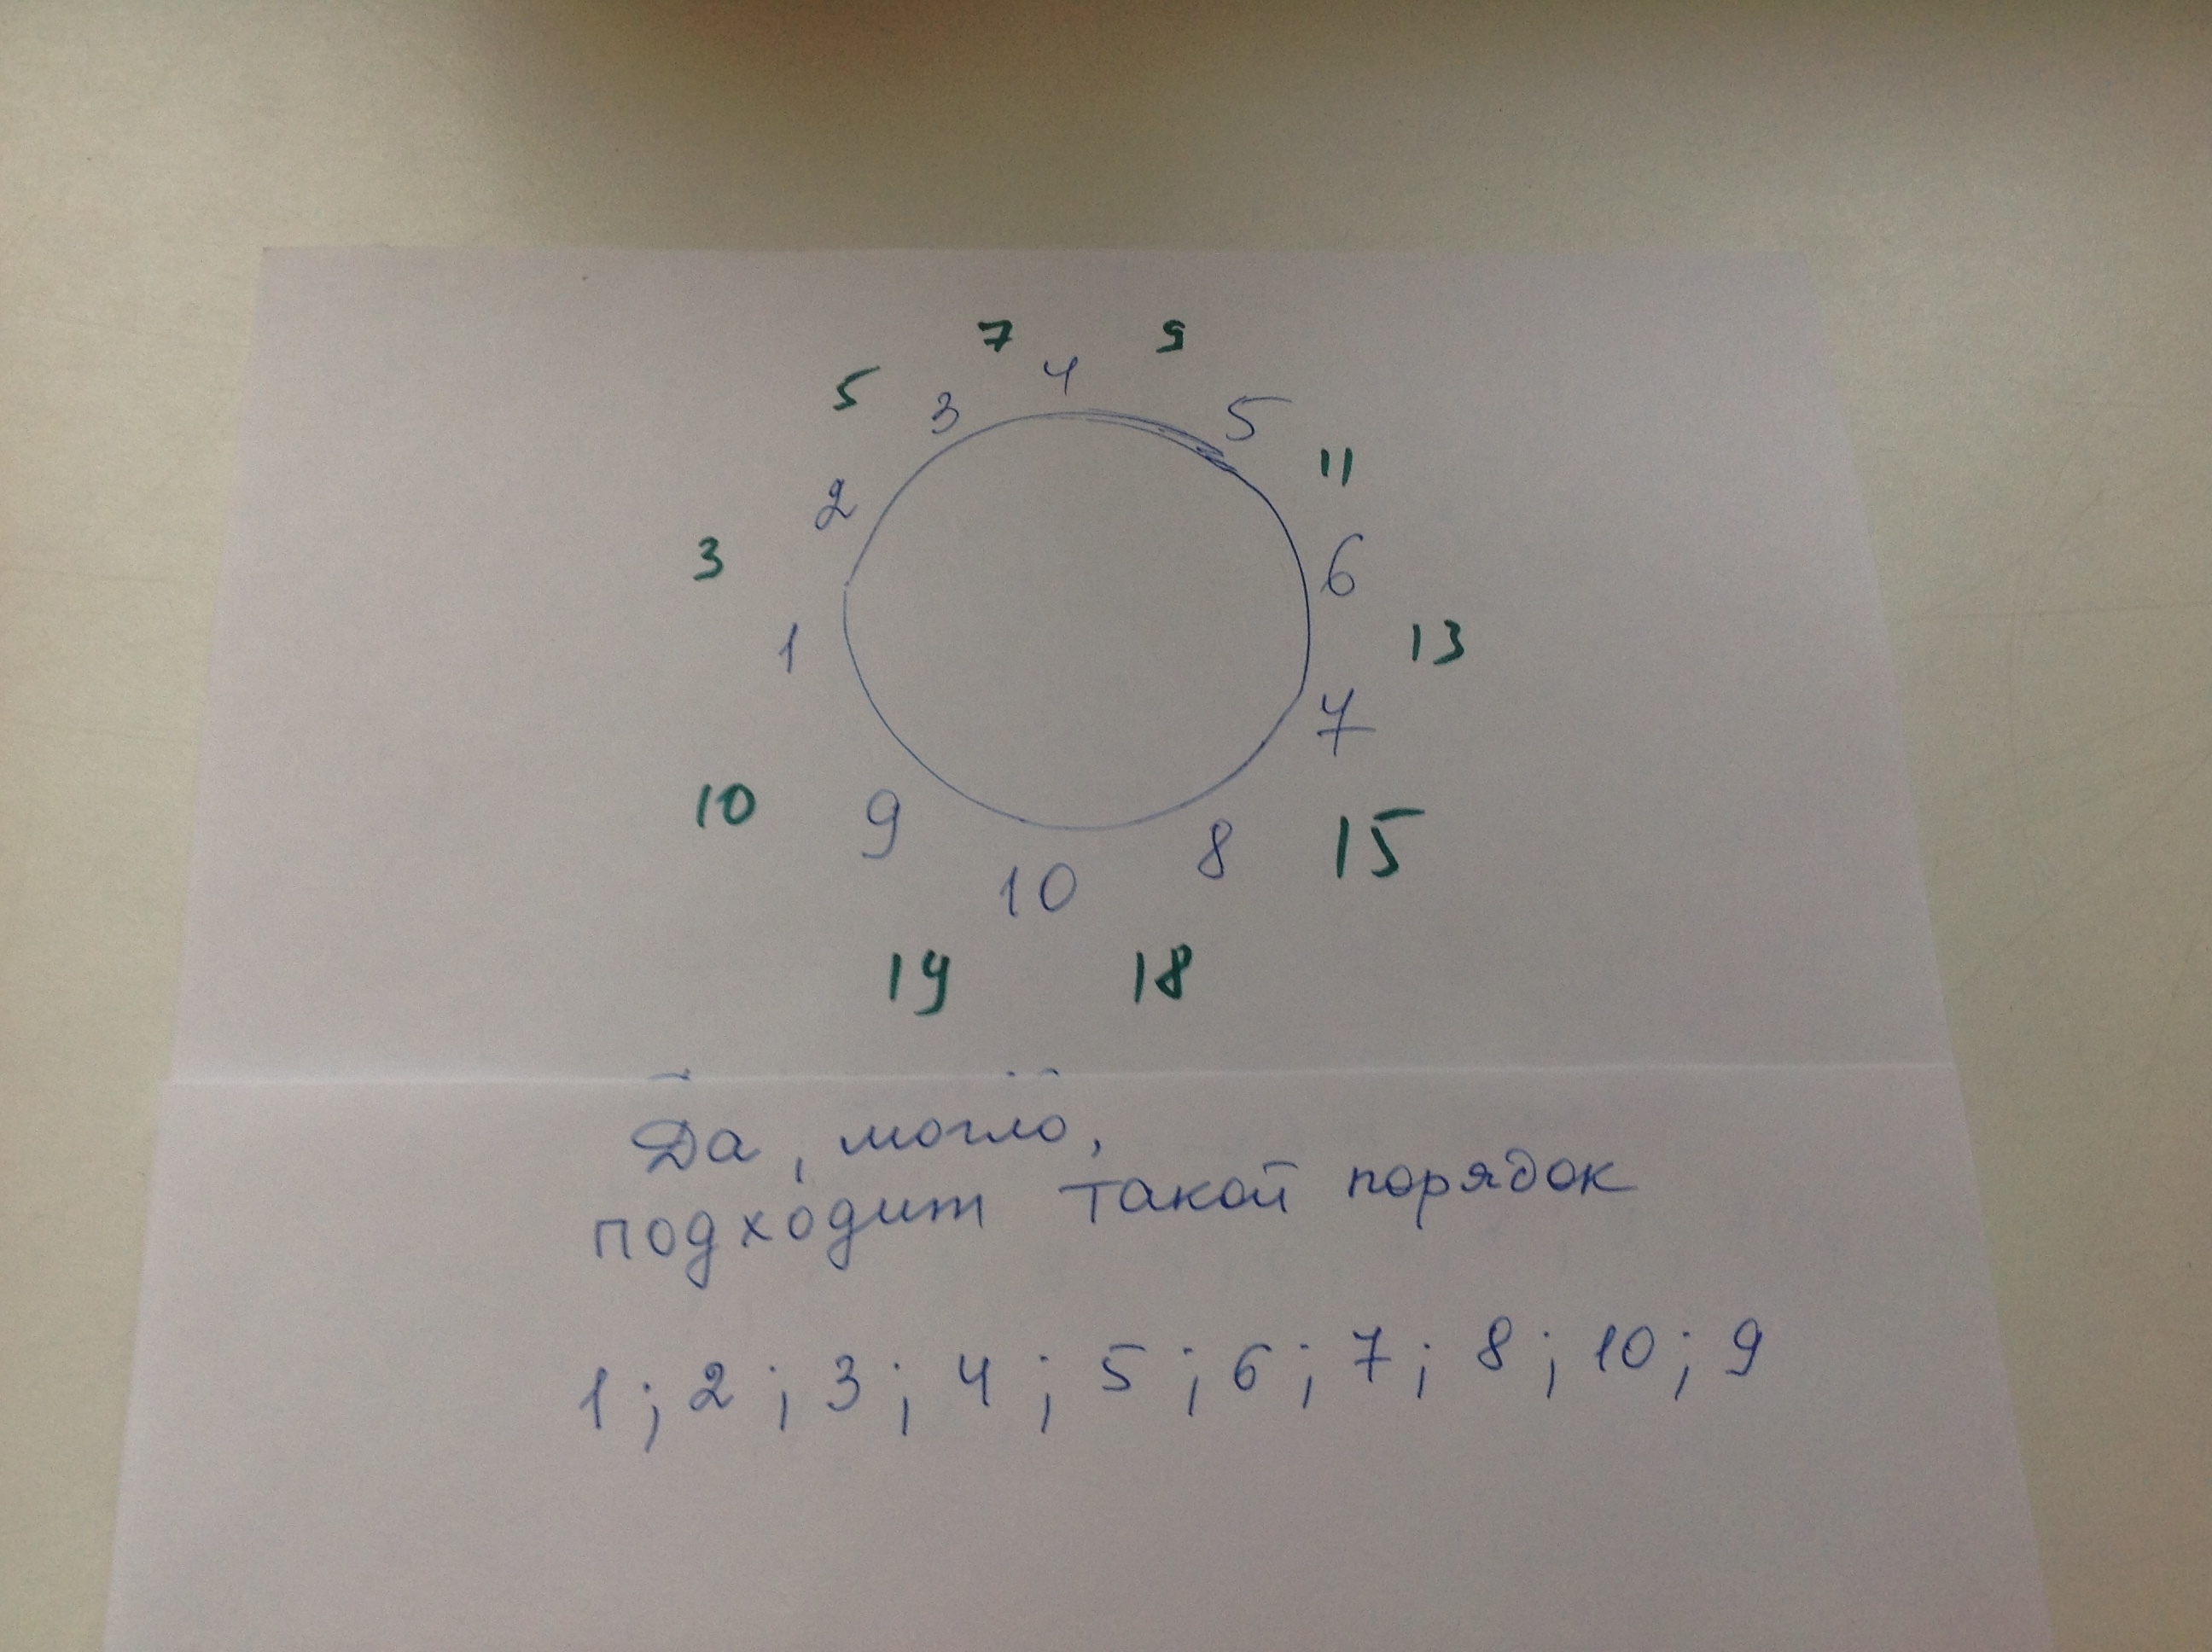 7 9
4
5 3 5
11
2
3 6
1 13
7
10 9 8 15
10
19 18
Да, могло,
подходит такой порядок
1; 2; 3; 4; 5; 6; 7; 8; 10; 9